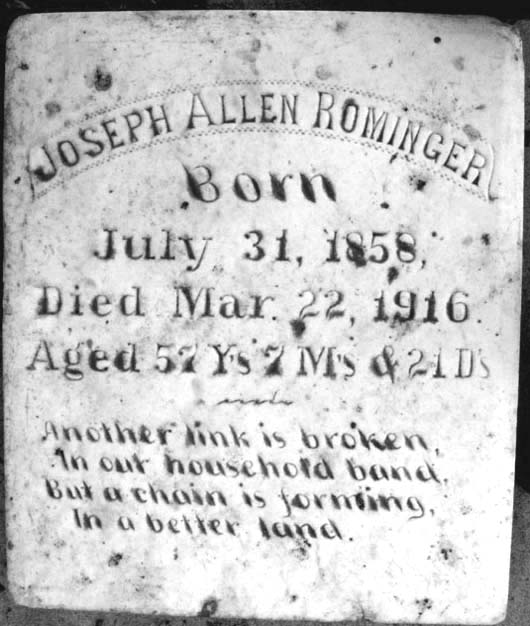 JOSEPH ALLEN ROMINGER
Born
July 31, 1858,
Died Mar. 22, 1916.
Aged 57 Ys 7 M's & 21 D's
Another link is broken,
In our household band,
But a chain is forming,
In a better land.